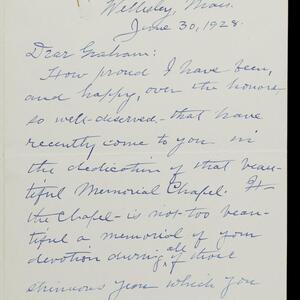 Wellesley, Mass.
June 30, 1928.
Dear Graham:
How proud I have been,
and happy, over the honors
so well-deserved - that have
recently come to you in
the dedication of that beau-
tiful Memorial Chapel. It -
the Chapel - is not too beau-
tiful a memorial of your
devotion during all of those
strenuous years which you